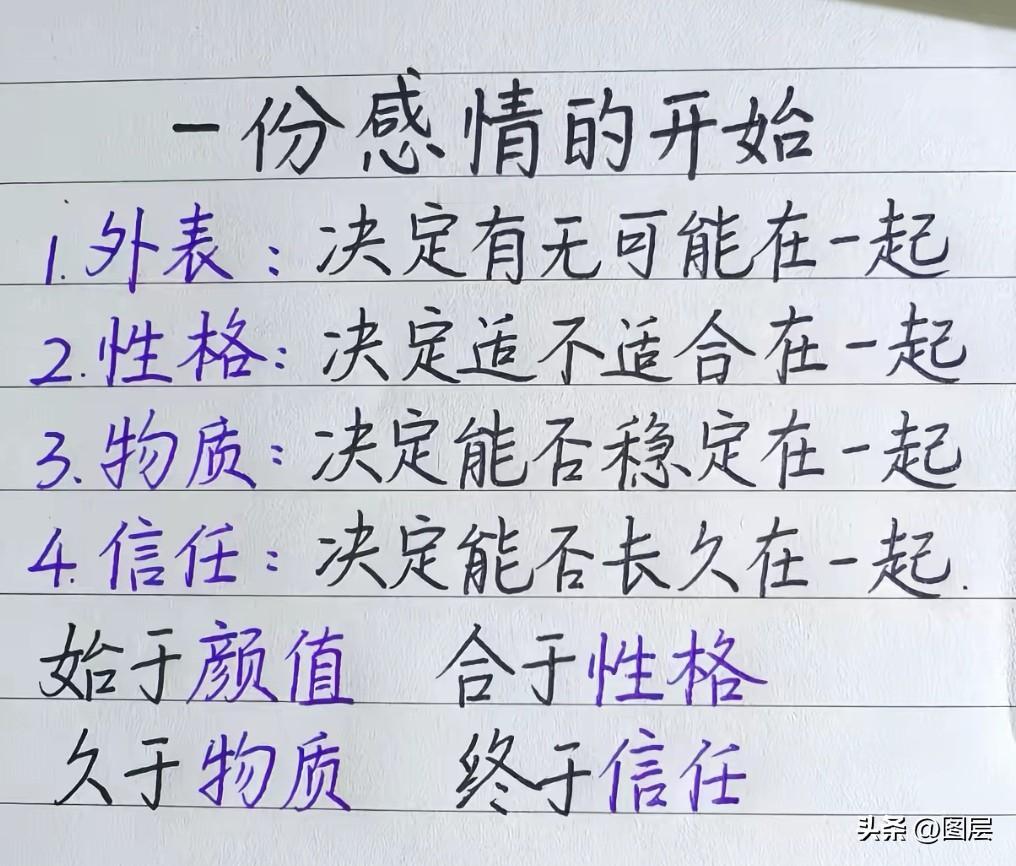 一份感情的开始
1.外表：决定有无可能在一起
2.性格：决定适不适合在一起
3.物质：决定能否稳定在一起
4.信任：决定能否长久在一起.
始于颜值 合于性格
久于物质 终于信任
头条 @图层